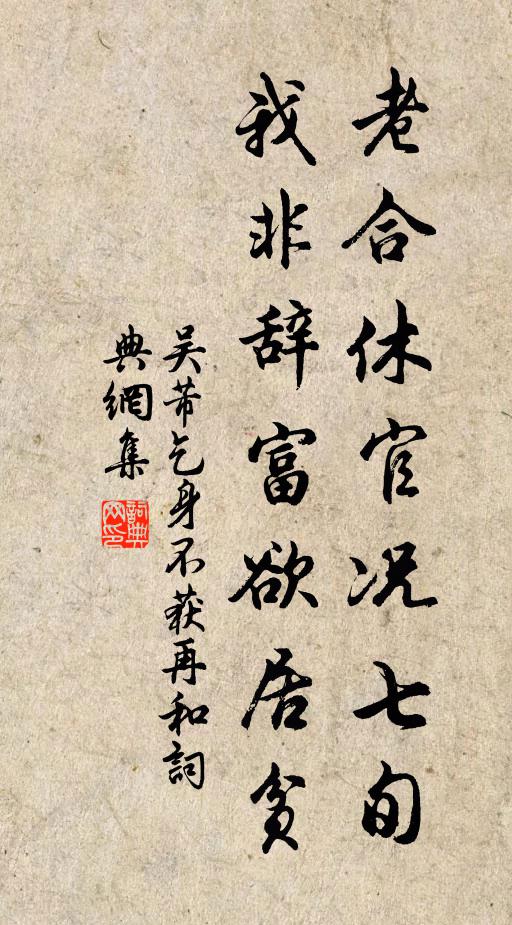 老合休官况七旬
我非辞富欲居贫
吴芾乞身不获再和詞
典網集
詞典網印